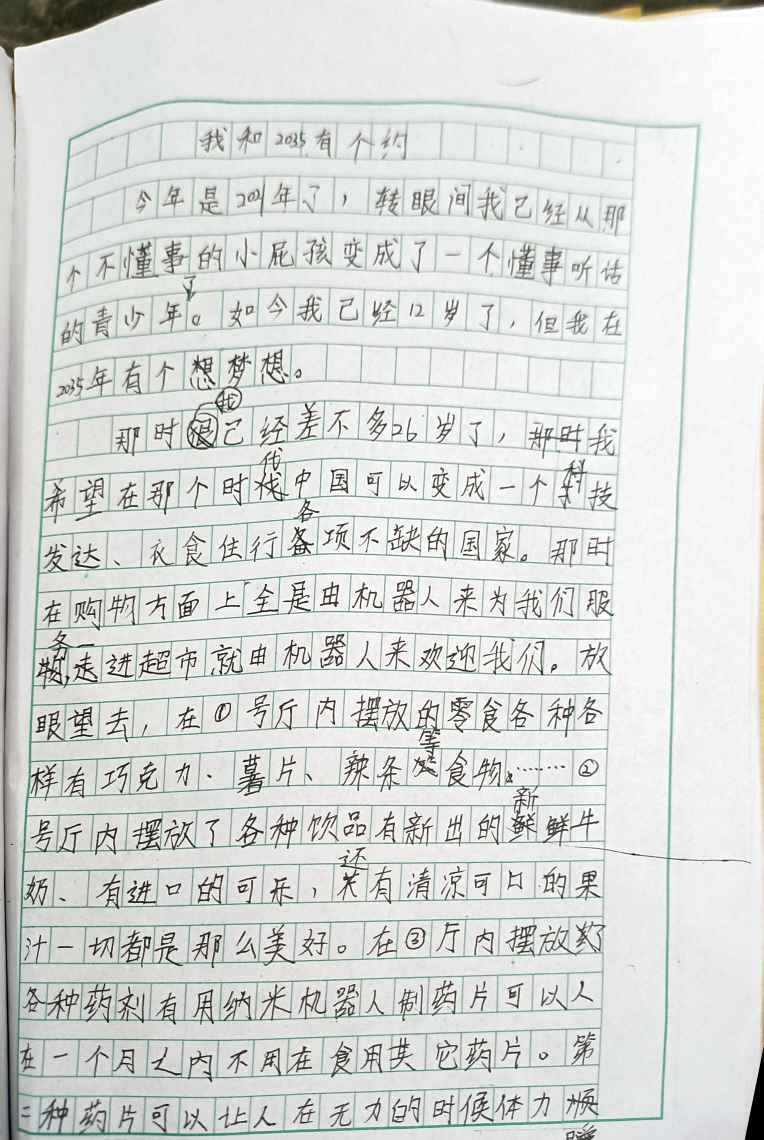 我和2035有个约
今年是2021年了，转眼间我已经从那
个不懂事的小屁孩变成了一个懂事听话
的青少年了。如今我已经12岁了，但我在
2035年有个想梦想。
那时我已经差不多26岁了，那时我
希望在那个时代中国可以变成一个科技
发达、衣食住行各项不缺的国家。那时
在购物方面上全是由机器人来为我们服
务,一走进超市就由机器人来欢迎我们。放
眼望去，在①号厅内摆放的零食各种各
样有巧克力、薯片、辣条等食物……②
号厅内摆放了各种饮品有新出的新鲜牛
奶、有进口的可乐，还有清凉可口的果
汁一切都是那么美好。在③厅内摆放
各种药剂有用纳米机器人制药片可以人
在一个月之内不用在食用其它药片。第
二种药片可以让人在无力的时候体力